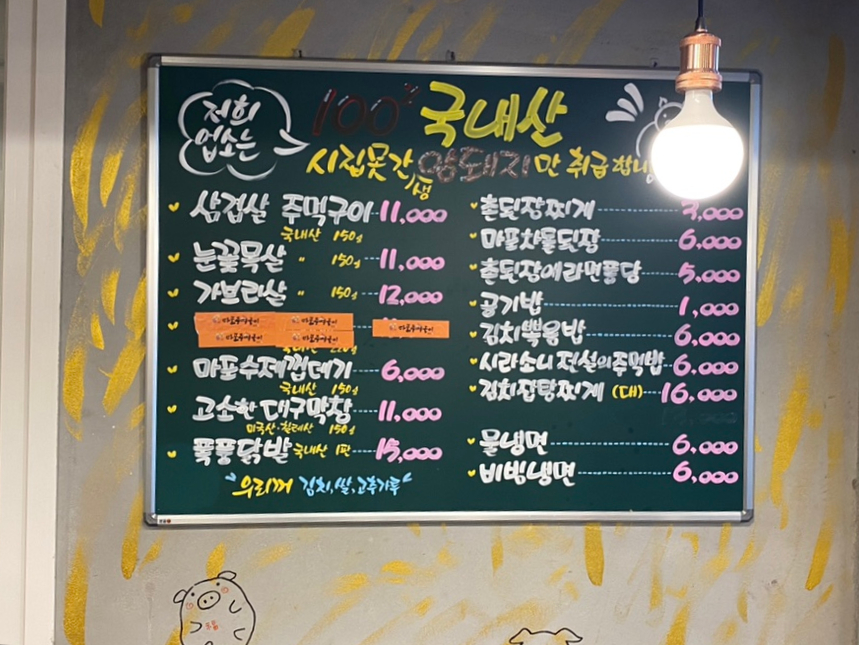 저희
업소는
100% 국내산
시집못간 암돼지만 취급합니
생
삼겹살 주먹구이 11,000
국내산 150g
눈꽃목살 " 150g 11,000
가브리살 " 150g 12,000
마포수제껍데기 6,000
국내산 150g
고소한 대구막창 11,000
미국산·칠레산 150g
폭풍닭발 국내산 1판 15,000
"우리꺼 김치,쌀,고추가루"
촌된장찌게 3,000
마포차돌된장 6,000
촌된장에라면퐁당 5,000
공기밥 1,000
김치뽂음밥 6,000
시라소니 전설의주먹밥 6,000
김치잡탕찌게 (대) 16,000
물냉면 6,000
비빔냉면 6,000